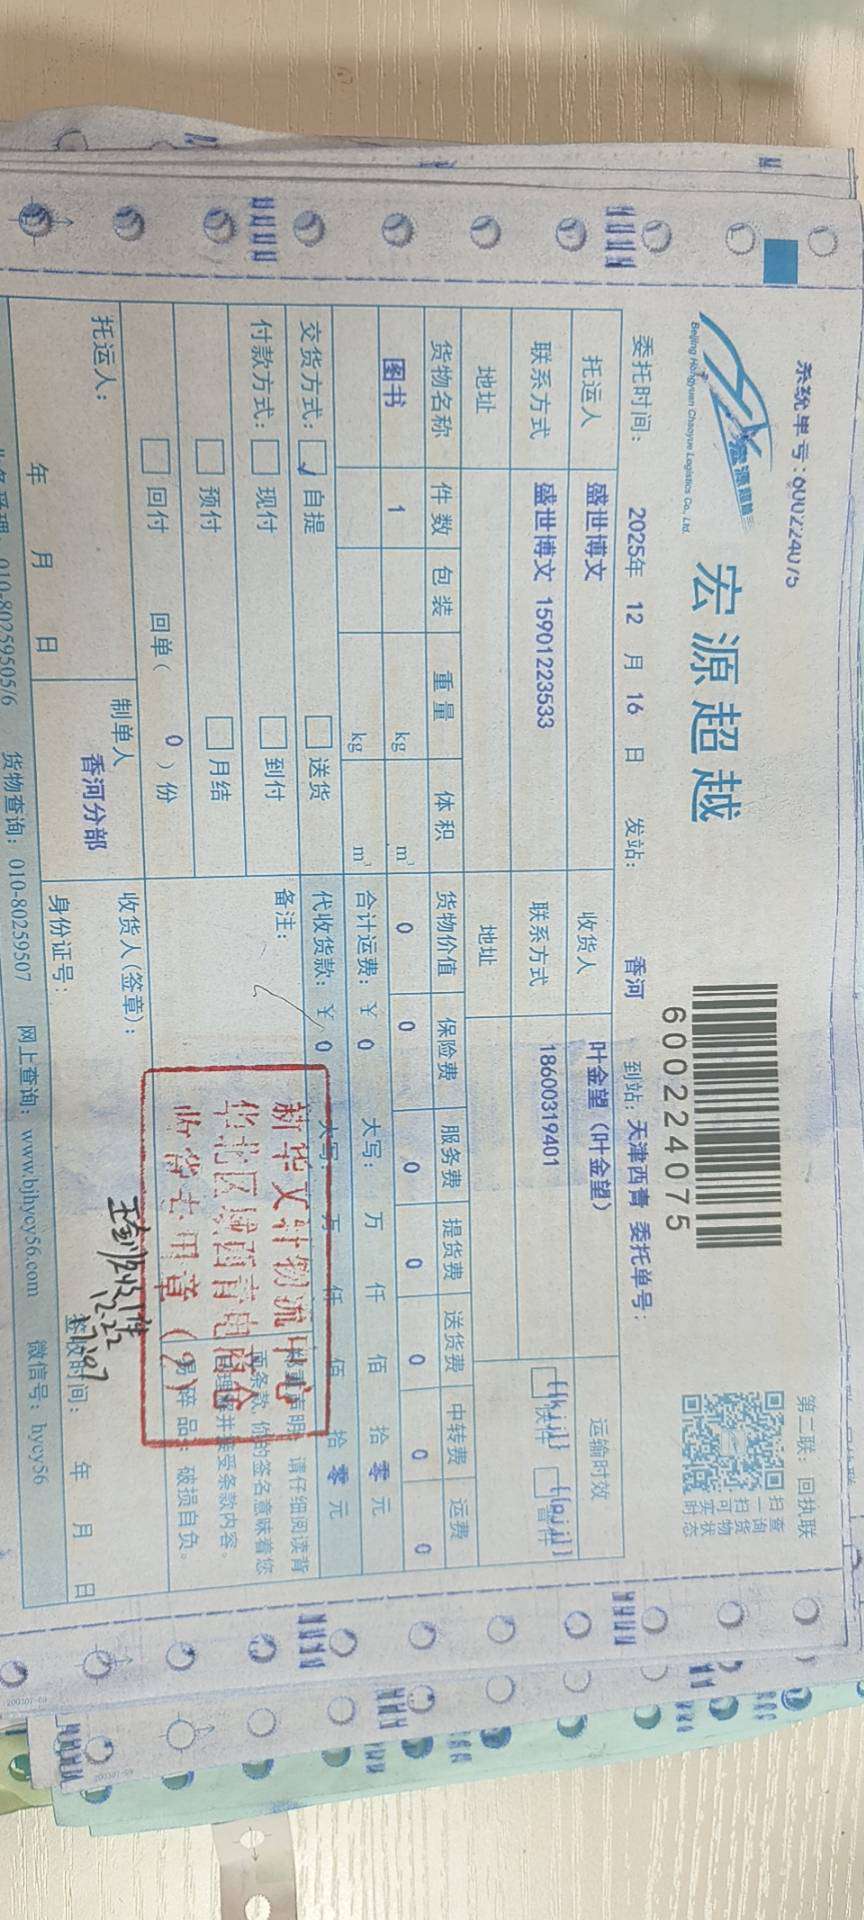 系统单号:600224075
第二联：回执联
宏源超越
Beijing Hongyuan Chaoyue Logistics Co., Ltd.
宏源超越
600224075
扫一扫可实时
查询货物状态
委托时间： 2025年 12 月 16 日 发站： 香河 到站： 天津西青 委托单号：
托运人 盛世博文 收货人 叶金望（叶金望） 运输时效
联系方式 盛世博文 15901223533 联系方式 18600319401
地址 地址
货物名称 件数 包装 重量 体积 货物价值 保险费 服务费 提货费 送货费 中转费 运费
图书 1 kg m³ 0 0 0 0 0 0 0
kg m³ 合计运费：￥ 0 大写： 万 仟 佰 拾 零 元
交货方式： 自提 送货 代收货款：￥ 0 大写： 万 仟 佰 拾 零 元
付款方式： 现付 到付 备注：
预付 月结
回付 回单（ 0 ）份
请仔细阅读背
面条款 你的签名意味着您
理解并接受条款内容。
易碎品： 破损自负。
新华文轩物流中心
华北区域西青电商仓
收货专用章（9）
托运人： 制单人 收货人(签章)：
香河分部
实收1件
12.22
年 月 日 身份证号： 签收时间： 年 月 日
010-80259505/6 货物查询：010-80259507 网上查询：www.bjhycy56.com 微信号：hycy56